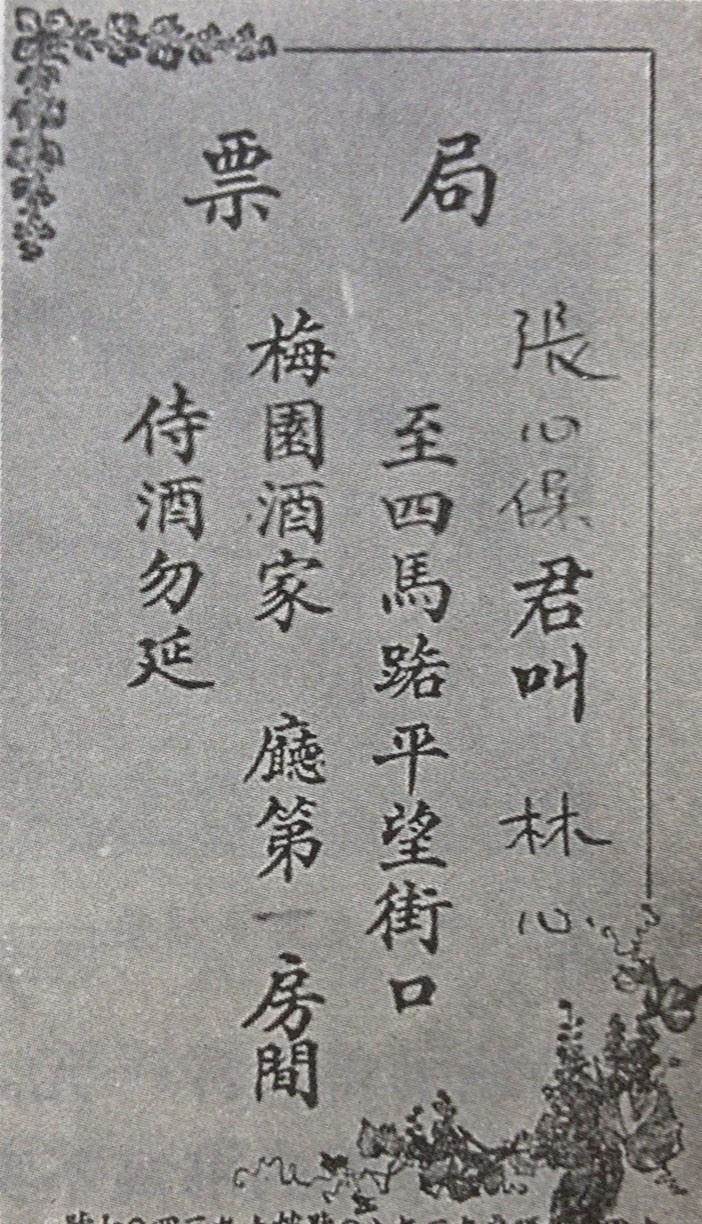 局票
張心保君叫 林心
至四馬路平望街口
梅園酒家 廳第一房間
侍酒勿延